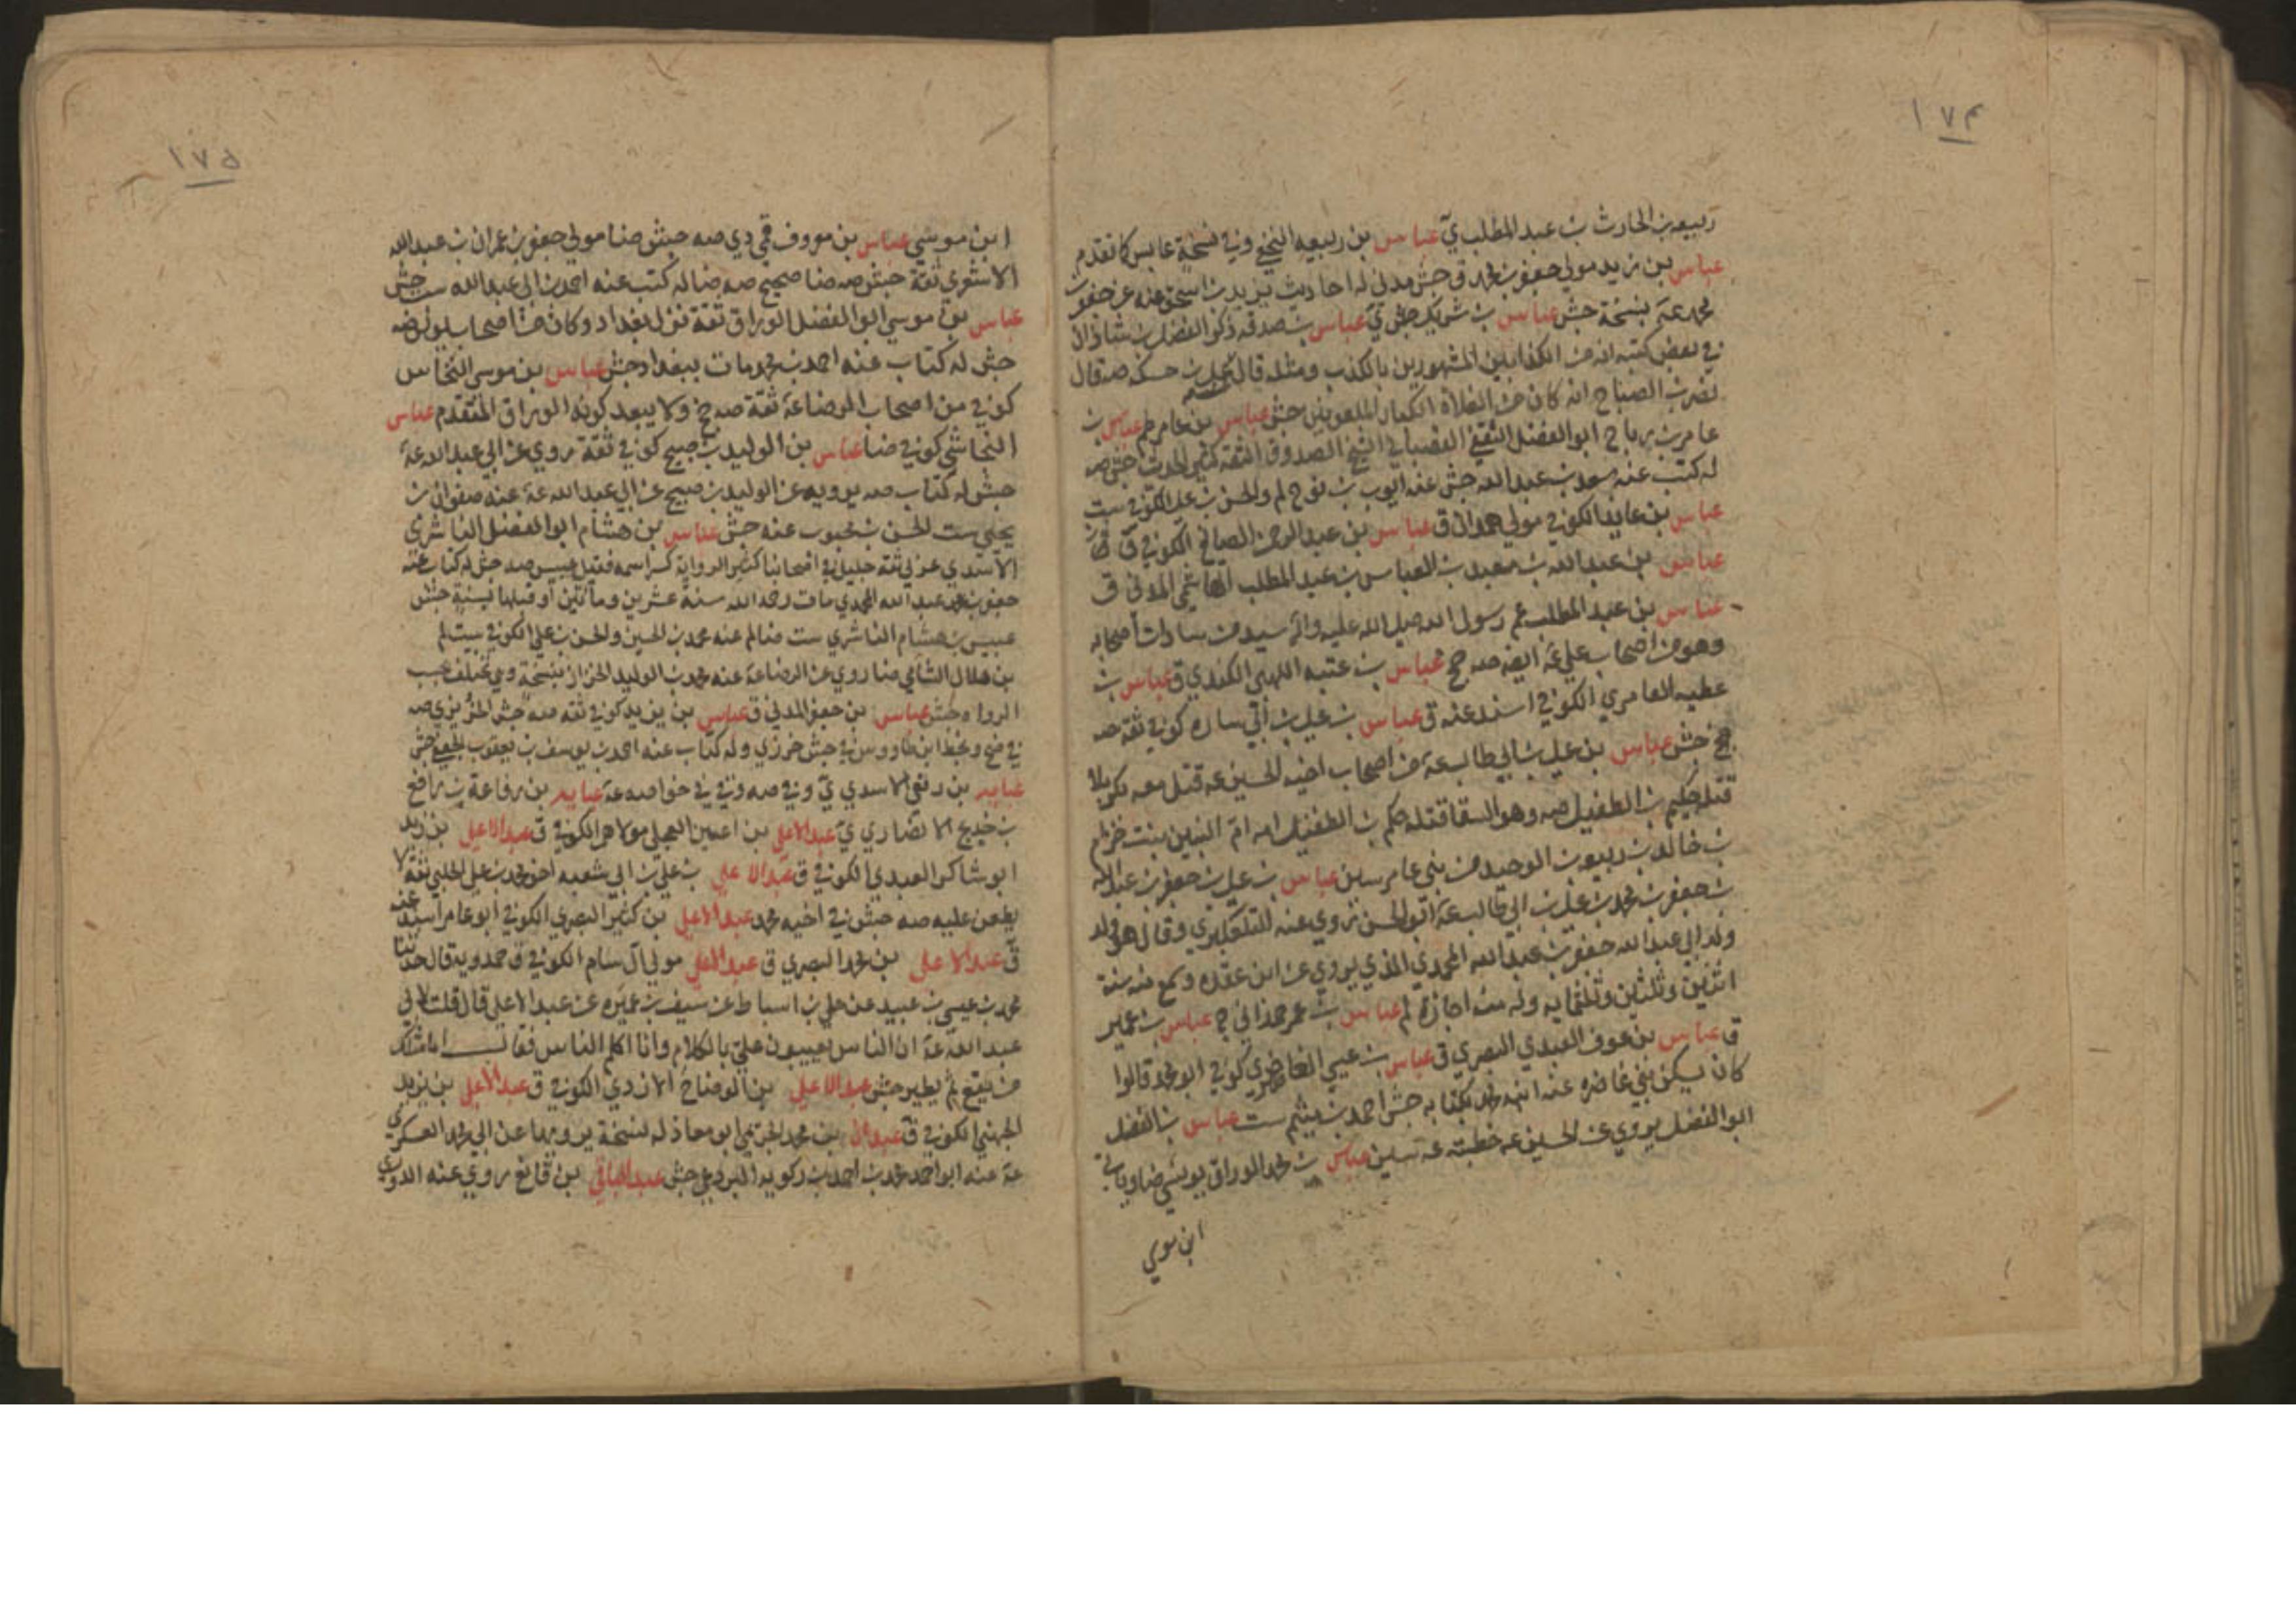 ١٧۴
ربیعه بن الحارث بن عبد المطلب ي عباس بن ربیعه النخعي وفي نسخة عابس كما تقدم
عباس بن زيد مولى جعفر بن محمد ق جش مدني له احاديث يزيد بن اسحق عنه عن جعفر بن
محمد عه بنسخة جش عباس بن شريك ي عباس بن صدقه ذكر الفضل بن شاذان
في بعض كتبه انه من الكذابين المشهورين بالكذب ومثله قال محمد بن صه قال
نصر بن الصباح انه كان من الغلاة الكبار الملعونين جش عباس بن عامر لم عباس بن
عامر بن رباح ابو الفضل الثقفي القصباني الشيخ الصدوق الثقه كثير الحديث جش صه
له كتب عنه سعد بن عبد الله جش عنه ايوب بن نوح لم والحسن بن علي الكوفي ست
عباس بن عايذ الكوفي مولى همدان ق عباس بن عبد الرحمن الصايغ الكوفي ق
عباس بن عبد الله بن معبد بن العباس بن عبد المطلب الهاشمي المدني ق
عباس بن عبد المطلب عم رسول الله صلى الله عليه واله سيد من سادات اصحابه
وهو من اصحاب علي عه ايضا صه جخ عباس بن عتبه اللهبي الكندي ق عباس بن
عطيه العامري الكوفي اسند عنه ق عباس بن علي بن ابي ساره كوفي ثقة صه
جخ جش عباس بن علي بن ابي طالب عه من اصحاب اخيه الحسين عه قتل معه بكربلا
قتله حكيم بن الطفيل صه وهو السقا قتله حكم بن الطفيل امه ام البنين بنت حزام
بن خالد بن ربيعه بن الوحيد من بني عامر سين عباس بن علي بن جعفر بن عبد الله
بن جعفر بن محمد بن علي بن ابي طالب عه ابو الحسن روي عنه التلعكبري وقال هو ولد
ولد ابي عبد الله جعفر بن عبد الله المحمدي الذي يروي عن ابن عقده وسمع منه سنة
اثنين وثلثين وثلثمايه وله منه اجازة لم عباس بن عمر همداني ج عباس بن عمير
ق عباس بن عوف العبدي البصري ق عباس بن عيسى الغاضري كوفي ابو محمد قالوا
كان يسكن بني غاضره عنه ابنه محمد بكتابه جش احمد بن ميثم ست عباس بن الفضل
ابو الفضل يروي عن الحسين عه خطبته عه سين عباس بن محمد الوراق يونسي ضا وياتي
ابن موسي
١٧۵
ابن موسي عباس بن معروف قمي دي صه جش ضا مولى جعفر بن عمران بن عبد الله
الاشعري ثقة جش صه ضا صحيح صه ضا له كتب عنه احمد بن ابي عبد الله ست جش
عباس بن موسى ابو الفضل الوراق ثقة نزل بغداد وكان من اصحاب يونس صه
جش له كتاب عنه احمد بن محمد مات ببغداد جش عباس بن موسى النخاس
كوفي من اصحاب الرضا عه ثقة صه جخ ولا يبعد كونه الوراق المتقدم عباس
النجاشي كوفي ضا عباس بن الوليد بن صبيح كوفي ثقة روي عن ابي عبد الله عه
جش له كتاب صه يرويه عن الوليد بن صبيح عن ابي عبد الله عه عنه صفوان بن
يحيى ست الحسن بن محبوب عنه جش عباس بن هشام ابو الفضل الناشري
الاسدي عربي ثقة جليل في اصحابنا كثير الرواية كسر اسمه فقيل عبيس صه جش له كتاب عنه
جعفر بن عبد الله المحمدي مات رحمه الله سنة عشرين ومأتين او قبلها بسنة جش
عبيس بن هشام الناشري ست ضا لم عنه محمد بن الحسين والحسن بن علي الكوفي ست لم
بن هلال الشامي ضا روي عن الرضا عه عنه محمد بن الوليد الخزاز بنسخة وهي تختلف بحسب
الرواه جش عباس بن جعفر المدني ق عباس بن يزيد كوفي ثقة صه جش الخريزي صه
في ضح وبخط ابن طاووس في جش خرزي وله كتاب عنه احمد بن يوسف بن يعقوب الجعفي جش
عبايه بن ربعي الاسدي ي وفي صه وفي في خواصه عه عبايه بن رفاعة بن رافع
بن خديج الانصاري ي عبد الاعلى بن اعين العجلي مولاهم الكوفي ق عبد الاعلى بن زيد
ابو شاكر العبدي الكوفي ق عبد الاعلى بن علي بن ابي شعبه اخو محمد بن علي الحلبي ثقة لا
يطعن عليه صه جش في اخيه محمد عبد الاعلى بن كثير البصري الكوفي ابو عامر اسند عنه
ق عبد الاعلى بن محمد البصري ق عبد الاعلى مولى آل سام الكوفي ق حمدويه قال حدثنا
محمد بن عيسى بن عبيد عن علي بن اسباط عن سيف بن عميره عن عبد الاعلى قال قلت لابي
عبد الله عه ان الناس يعيبون علي بالكلام وانا اكلم الناس فقال اما مثلك
من يقع ثم يطير جش عبد الاعلى بن الوضاح الازدي الكوفي ق عبد الاعلى بن يزيد
الجهني الكوفي ق عبدان بن محمد الجويمي ابو معاذ له نسخة يرويها عن ابي محمد العسكري
عه عنه ابو احمد محمد بن احمد بن زكويه البردعي جش عبد الباقي بن قانع روي عنه الدوري